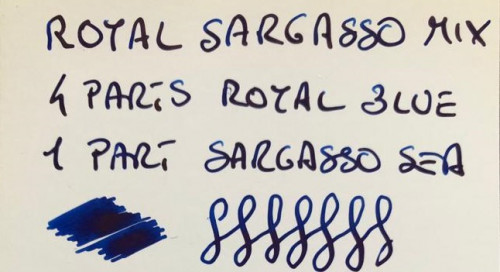 ROYAL SARGASSO MIX
4 PARTS ROYAL BLUE
1 PART SARGASSO SEA